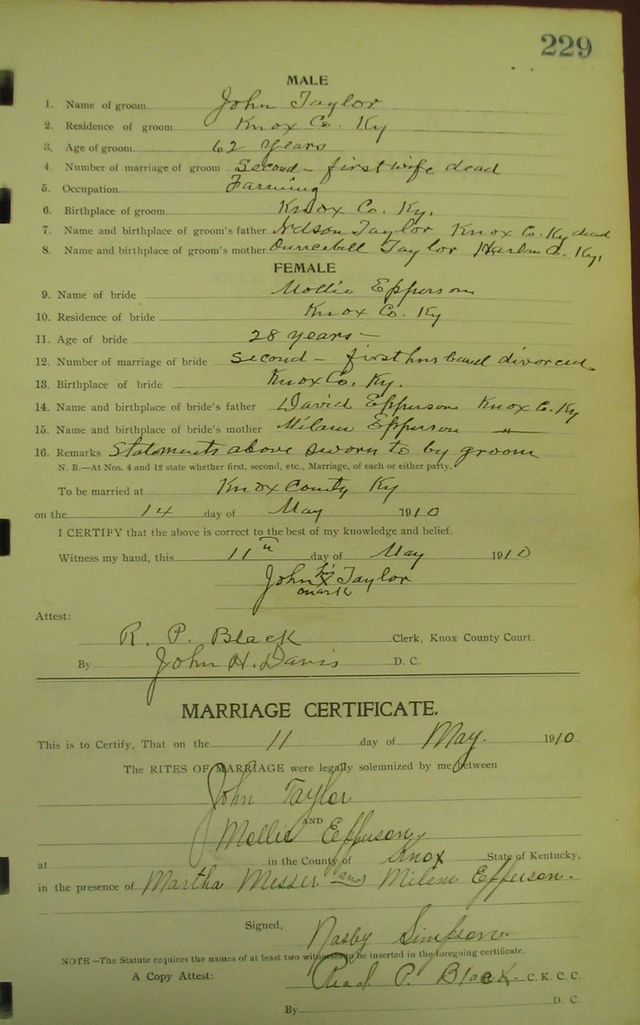 229
MALE
1. Name of groom John Taylor
2. Residence of groom Knox Co. Ky
3. Age of groom 62 years
4. Number of marriage of groom Second - first wife dead
5. Occupation Farming
6. Birthplace of groom Knox Co. Ky.
7. Name and birthplace of groom's father Nelson Taylor Knox C. Ky dead
8. Name and birthplace of groom's mother Taylor Harlan C. Ky,
FEMALE
9. Name of bride Mollie Epperson
10. Residence of bride Knox Co. Ky
11. Age of bride 28 years —
12. Number of marriage of bride Second - first husband divorced
13. Birthplace of bride Knox Co. Ky.
14. Name and birthplace of bride's father David Epperson Knox C. Ky
15. Name and birthplace of bride's mother Milam Epperson "
16. Remarks Statements above sworn to by groom
N. B.—At Nos. 4 and 12 state whether first, second, etc., Marriage, of each or either party.
To be married at Knox County Ky
on the 14 day of May 1910
I CERTIFY that the above is correct to the best of my knowledge and belief.
Witness my hand, this 11th day of May 1910
John his X Taylor
mark
Attest:
R. P. Black Clerk, Knox County Court.
By John H. Davis D. C.
MARRIAGE CERTIFICATE.
This is to Certify, That on the 11 day of May. 1910
The RITES OF MARRIAGE were legally solemnized by me between
John Taylor
AND
Mollie Epperson
at in the County of Knox State of Kentucky,
in the presence of Martha Messer and Milem Epperson.
Signed, Nasby Simpson
NOTE—The Statute requires the names of at least two witnesses to be inserted in the foregoing certificate.
A Copy Attest: Read P. Black C. K. C. C.
By D. C.